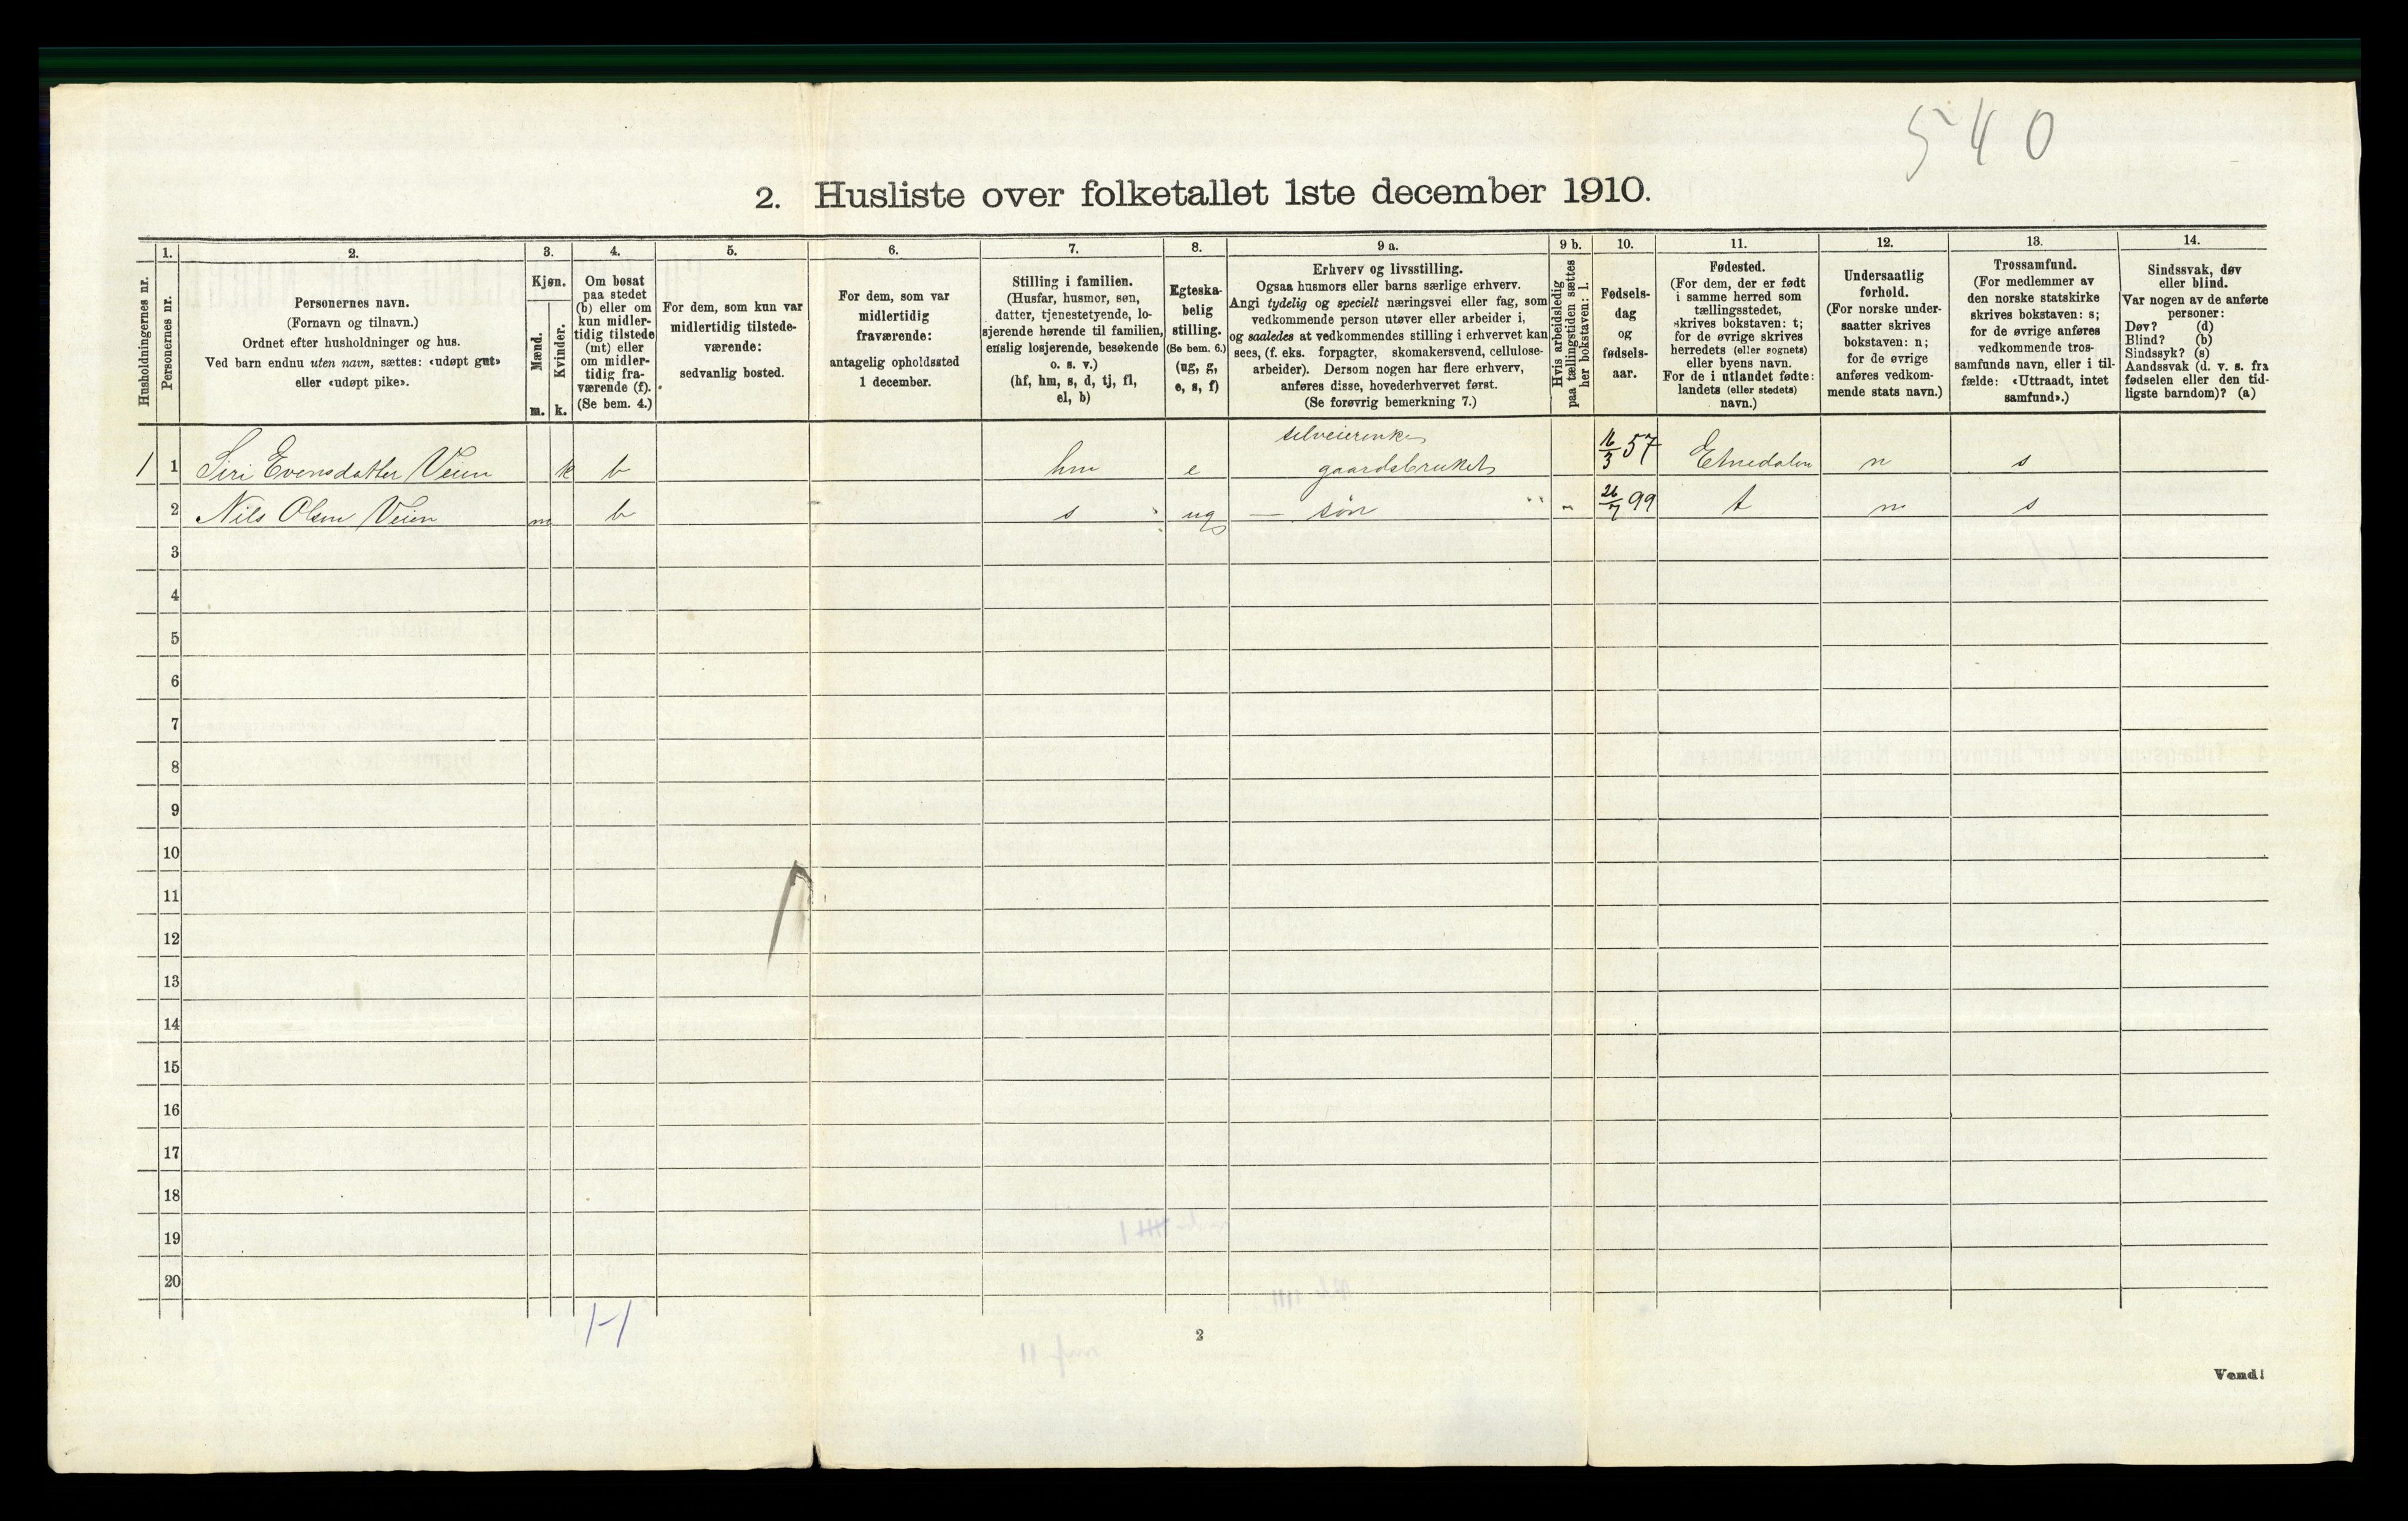 540
2. Husliste over folketallet 1ste december 1910.
Husholdningernes nr.
1.
Personernes nr.
2.
Personernes navn.
(Fornavn og tilnavn.)
Ordnet efter husholdninger og hus.
Ved barn endnu uten navn, sættes: «udøpt gut»
eller «udøpt pike».
3.
Kjøn.
Mænd.
Kvinder.
m.
k.
4.
Om bosat
paa stedet
(b) eller om
kun midler-
tidig tilstede
(mt) eller
om midler-
tidig fra-
værende (f).
(Se bem. 4.)
5.
For dem, som kun var
midlertidig tilstede-
værende:
sedvanlig bosted.
6.
For dem, som var
midlertidig
fraværende:
antagelig opholdssted
1 december.
7.
Stilling i familien.
(Husfar, husmor, søn,
datter, tjenestetyende, lo-
sjerende hørende til familien,
enslig losjerende, besøkende
o. s. v.)
(hf, hm, s, d, tj, fl,
el, b)
8.
Egteska-
belig
stilling.
(Se bem. 6.)
(ug, g,
e, s, f)
9 a.
Erhverv og livsstilling.
Ogsaa husmors eller barns særlige erhverv.
Angi tydelig og specielt næringsvei eller fag, som
vedkommende person utøver eller arbeider i,
og saaledes at vedkommendes stilling i erhvervet kan
sees, (f. eks. forpagter, skomakersvend, cellulose-
arbeider). Dersom nogen har flere erhverv,
anføres disse, hovederhvervet først.
(Se forøvrig bemerkning 7.)
9 b.
Hvis arbeidsledig
paa tællingstiden sættes
her bokstaven: l.
10.
Fødsels-
dag
og
fødsels-
aar.
11.
Fødested.
(For dem, der er født
i samme herred som
tællingsstedet,
skrives bokstaven: t;
for de øvrige skrives
herredets (eller sognets)
eller byens navn.
For de i utlandet fødte:
landets (eller stedets)
navn.)
12.
Undersaatlig
forhold.
(For norske under-
saatter skrives
bokstaven: n;
for de øvrige
anføres vedkom-
mende stats navn.)
13.
Trossamfund.
(For medlemmer av
den norske statskirke
skrives bokstaven: s;
for de øvrige anføres
vedkommende tros-
samfunds navn, eller i til-
fælde: «Uttraadt, intet
samfund».)
14.
Sindssvak, døv
eller blind.
Var nogen av de anførte
personer:
Døv? (d)
Blind? (b)
Sindssyk? (s)
Aandssvak (d. v. s. fra
fødselen eller den tid-
ligste barndom)? (a)
selveierenke
1 1 Siri Evensdatter Veien k b hm e gaardsbruket 16/3 57 Etnedalen n s
2 Nils Olsen Veien m b s ug — søn " - 26/7 99 t n s
3
4
5
6
7
8
9
10
11
12
13
14
15
16
17
18
19
20
1-1
2
Vend!